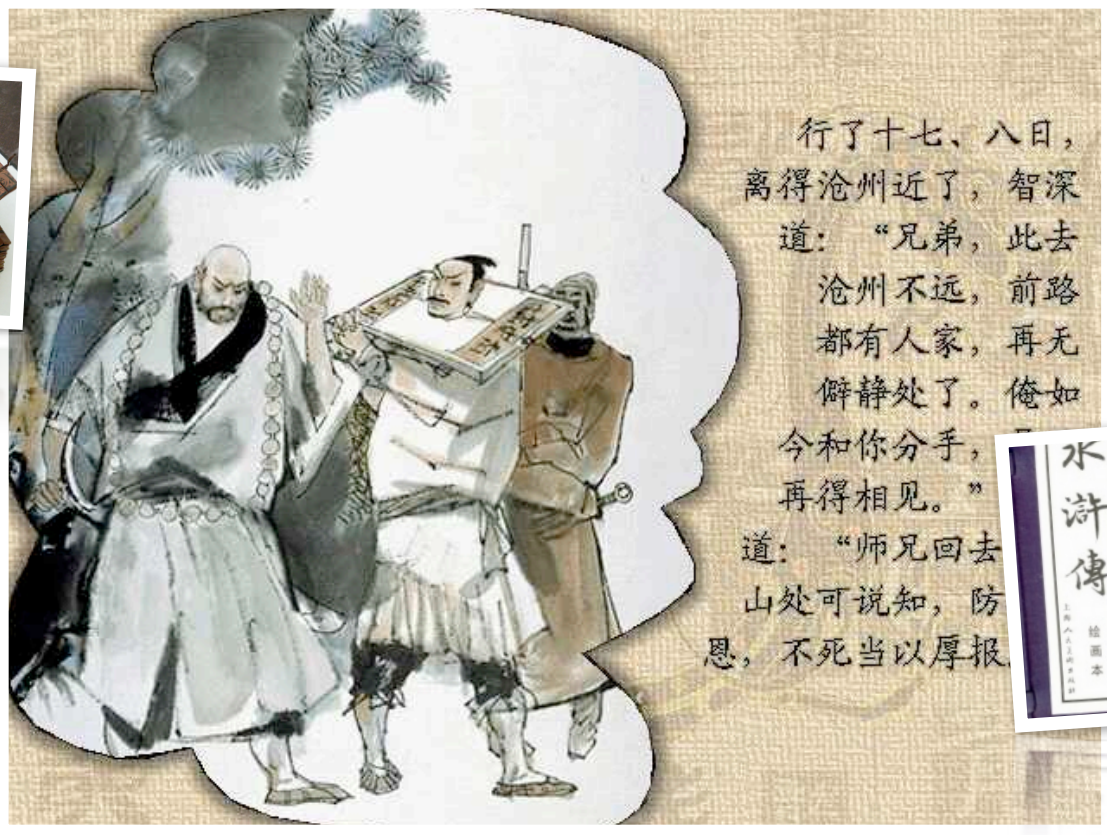 行了十七、八日，
离得沧州近了，智深
道：“兄弟，此去
沧州不远，前路
都有人家，再无
僻静处了。俺如
今和你分手，
再得相见。”
道：“师兄回去
山处可说知，防
恩，不死当以厚报
水滸傳
绘画本
上海人民美术出版社